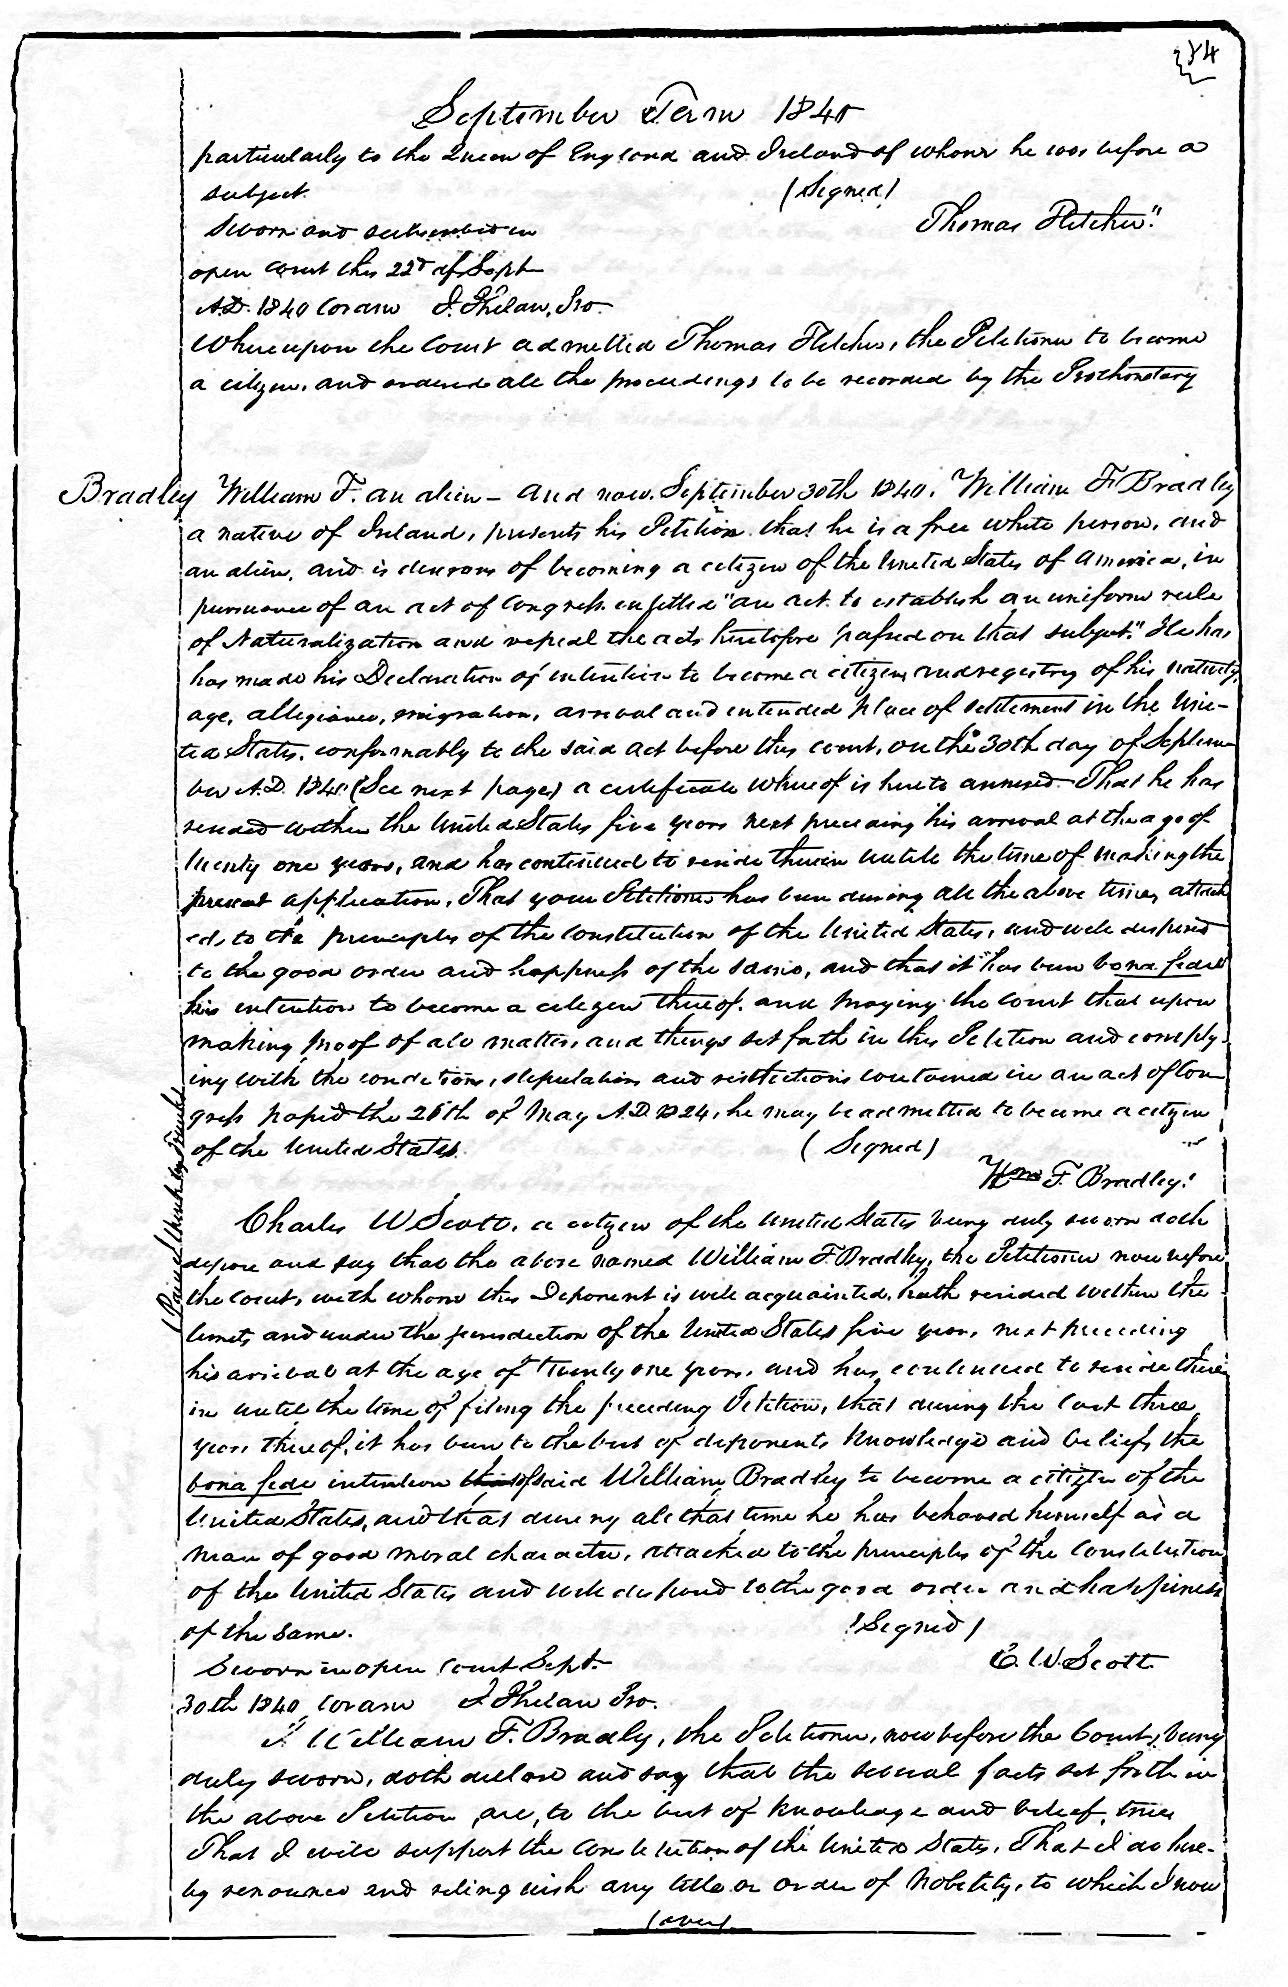 84
September Term 1840
particularly to the Queen of England and Ireland of whom he was before a
subject. (Signed)
Thomas Fletcher."
Sworn and subscribed in
open Court this 22d of Sept
A.D. 1840 Coram J. Phelan, Pro.
Whereupon the Court admitted Thomas Fletcher, the Petitioner to become
a citizen, and ordered all the proceedings to be recorded by the Prothonotary
Bradley William F. an alien - And now, September 30th 1840, William F. Bradley
a native of Ireland, presents his Petition that he is a free white person, and
an alien, and is desirous of becoming a citizen of the United States of America, in
pursuance of an act of Congress entitled "an act to establish an uniform rule
of Naturalization and repeal the acts heretofore passed on that subject." He has
has made his Declaration of intention to become a citizen and registry of his nativity,
age, allegiance, emigration, arrival and intended place of settlement in the Uni-
ted States, conformably to the said act before this court, on the 30th day of Septem
ber A.D. 1840 (See next page) a certificate whereof is hereto annexed. That he has
resided within the United States five years next preceding his arrival at the age of
twenty one years, and has continued to reside therein until the time of making the
present application, That your Petitioner has been during all the above time, attach
ed, to the principles of the Constitution of the United States, and well disposed
to the good order and happiness of the same, and that it has been bona fide
his intention to become a citizen thereof. and praying the Court that upon
making proof of all matters and things set forth in this Petition and comply-
ing with the conditions, stipulations and restrictions contained in an act of Con
gress passed the 26th of May A.D. 1824, he may be admitted to become a citizen
of the United States. (Signed)
Wm F. Bradley."
Charles W Scott, a citizen of the United States being duly sworn doth
depose and say that the above named William F. Bradley, the Petitioner now before
the Court, with whom this Deponent is well acquainted, hath resided within the
limits and under the jurisdiction of the United States five years next preceding
his arrival at the age of twenty one years, and has continued to reside there
in until the time of filing the preceding Petition, that during the last three
years thereof, it has been to the best of deponents knowledge and belief, the
bona fide intention of said William Bradley to become a citizen of the
United States, and that during all that time he has behaved himself as a
man of good moral character, attached to the principles of the Constitution
of the United States and well disposed to the good order and happiness
of the same. (Signed)
C. W. Scott
Sworn in open Court Sept.
30th 1840, Coram J Phelan Pro.
I William F. Bradly, the Petitioner, now before the Court, being
duly sworn, doth declare and say that the several facts set forth in
the above Petition are, to the best of knowledge and belief, true
That I will support the Constitution of the United States, That I do here-
by renounce and relinquish any title or order of Nobility, to which I now
(over)